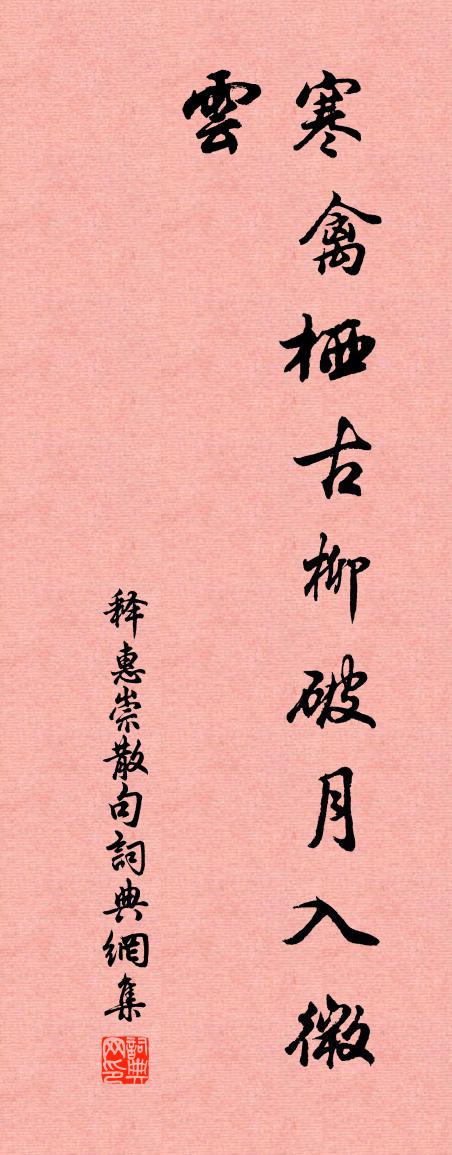 寒禽栖古柳破月入微
雲
释惠崇散句詞典網集
詞典网印